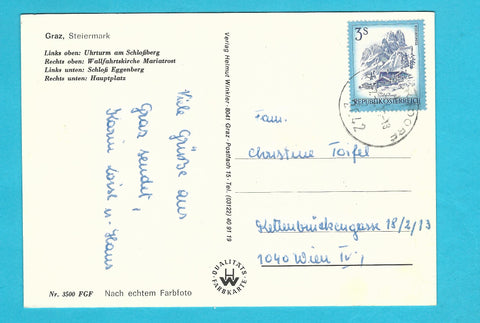 Graz, Steiermark
Links oben: Uhrturm am Schloßberg
Rechts oben: Wallfahrtskirche Mariatrost
Links unten: Schloß Eggenberg
Rechts unten: Hauptplatz
Viele Grüße aus
Graz sendet,
Karin u. Hans
Nr. 3500 FGF Nach echtem Farbfoto
Verlag Helmut Winkler · 8041 Graz · Postfach 15 · Tel. (03122) 40 91 19
QUALITÄTS
FARBKARTE
3S
REPUBLIK ÖSTERREICH
Fam.
Christine Toifel
Kettenbrückengasse 18/2/13
1040 Wien IV.